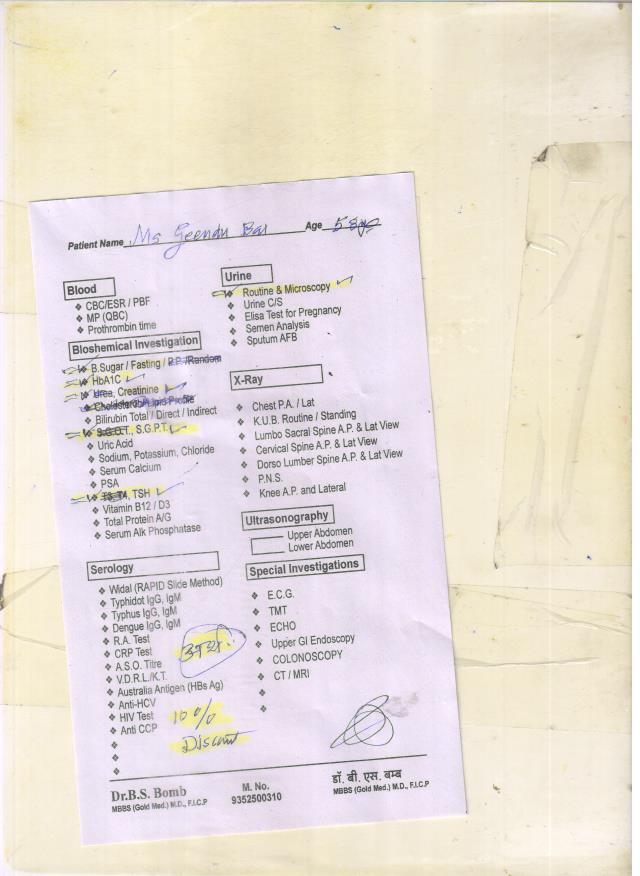 Patient Name Ms Geendu Bai Age 58y
Blood
❖ CBC/ESR / PBF
❖ MP (QBC)
❖ Prothrombin time
Bioshemical Investigation
❖ B.Sugar / Fasting / P.P. /Random
❖ HbA1C
❖ Urea, Creatinine
❖ Cholesterol/Lipid Profile
❖ Bilirubin Total / Direct / Indirect
❖ S.G.O.T., S.G.P.T.
❖ Uric Acid
❖ Sodium, Potassium, Chloride
❖ Serum Calcium
❖ PSA
❖ T3 T4, TSH
❖ Vitamin B12 / D3
❖ Total Protein A/G
❖ Serum Alk Phosphatase
Serology
❖ Widal (RAPID Slide Method)
❖ Typhidot IgG, IgM
❖ Typhus IgG, IgM
❖ Dengue IgG, IgM
❖ R.A. Test
❖ CRP Test
❖ A.S.O. Titre
❖ V.D.R.L./K.T.
❖ Australia Antigen (HBs Ag)
❖ Anti-HCV
❖ HIV Test
❖ Anti CCP
10%
Discount
Urine
❖ Routine & Microscopy
❖ Urine C/S
❖ Elisa Test for Pregnancy
❖ Semen Analysis
❖ Sputum AFB
X-Ray
❖ Chest P.A. / Lat
❖ K.U.B. Routine / Standing
❖ Lumbo Sacral Spine A.P. & Lat View
❖ Cervical Spine A.P. & Lat View
❖ Dorso Lumber Spine A.P. & Lat View
❖ P.N.S.
❖ Knee A.P. and Lateral
Ultrasonography
Upper Abdomen
Lower Abdomen
Special Investigations
❖ E.C.G.
❖ TMT
❖ ECHO
❖ Upper GI Endoscopy
❖ COLONOSCOPY
❖ CT / MRI
Dr.B.S. Bomb
MBBS (Gold Med.) M.D., F.I.C.P
M. No.
9352500310
डॉ. बी. एस. बम्ब
MBBS (Gold Med.) M.D., F.I.C.P